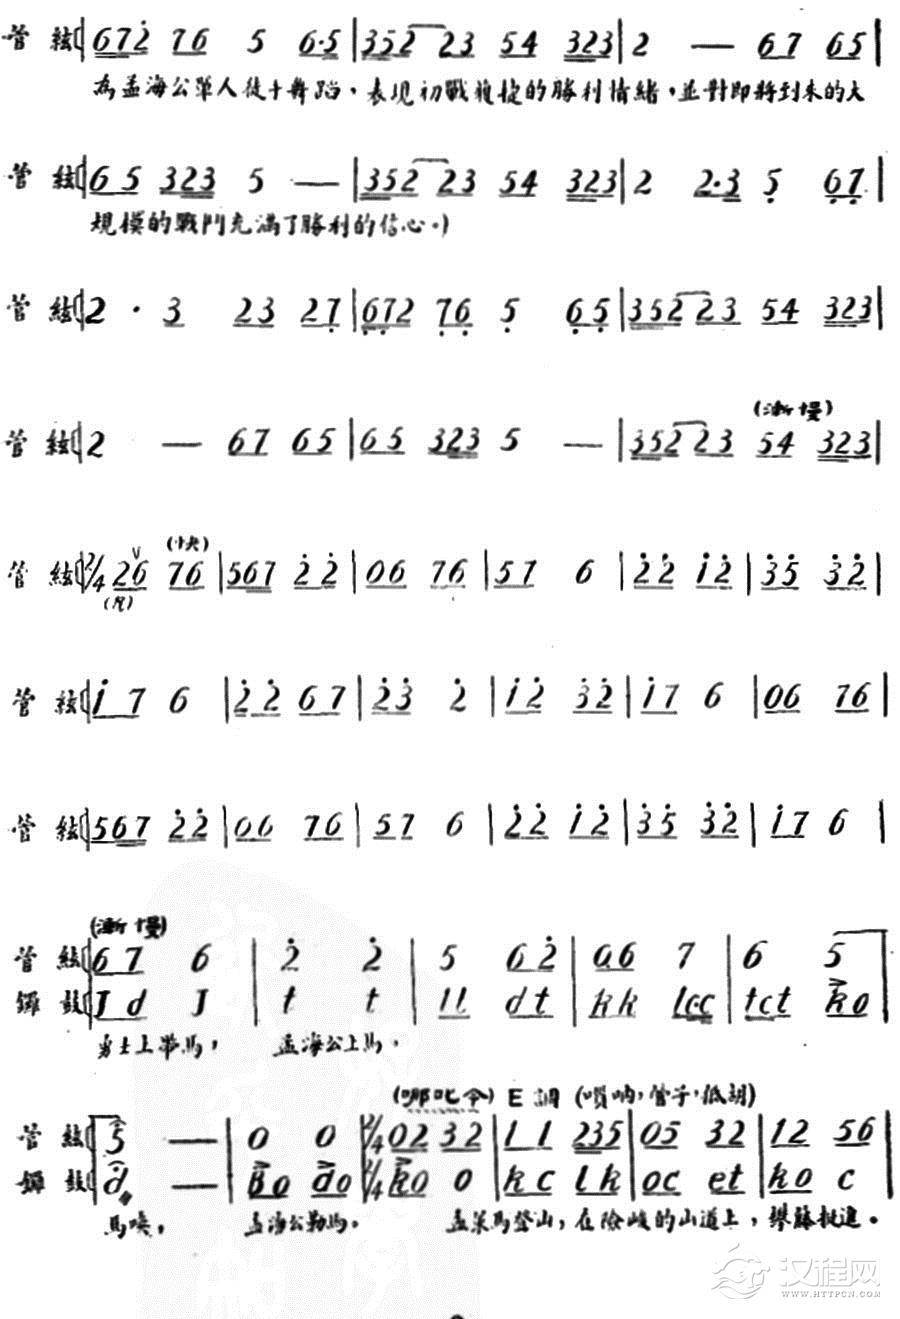 管 絃 672̇ 76 5 6·5 | 352 23 54 323 | 2 — 67 65 |
為孟海公單人徒手舞蹈，表現初戰獲捷的勝利情緒，並對即將到来的大
管 絃 65 323 5 — | 352 23 54 323 | 2 2·3 5̣ 6̣7̣ |
規模的戰鬥充滿了勝利的信心。)
管 絃 2 · 3 23 27̣ | 6̣7̣2 7̣6̣ 5̣ 6̣5̣ | 352 23 54 323 |
(漸慢)
管 絃 2 — 67 65 | 65 323 5 — | 352 23 54 323 |
(快)
管 絃 2/4 26 76 | 567 2̇2̇ | 06 76 | 57 6 | 2̇2̇ 1̇2̇ | 3̇5̇ 3̇2̇ |
(凡)
管 絃 1̇7 6 | 2̇2̇ 67 | 2̇3̇ 2̇ | 1̇2̇ 3̇2̇ | 1̇7 6 | 06 76 |
管 絃 567 2̇2̇ | 06 76 | 57 6 | 2̇2̇ 1̇2̇ | 3̇5̇ 3̇2̇ | 1̇7 6 |
(漸慢)
管 絃 67 6 | 2̇ 2̇ | 5 62̇ | 06 7 | 6 5
鑼 鼓 J d J | t t | ll dt | kk lcc | tct ko
勇士上帶馬， 孟海公上馬。
(哪吒令) E調 (嗩吶，管子，低胡)
管 絃 5 — | 0 0 | 2/4 02 32 | 11 235 | 05 32 | 12 56 |
鑼 鼓 d — | Bo do | 2/4 ko 0 | kc lk | oc et | ko c |
馬喚， 孟海公勒馬。 孟策馬登山，在險峻的山道上，攀藤挺進。
汉程网
WWW.HTTPCN.COM